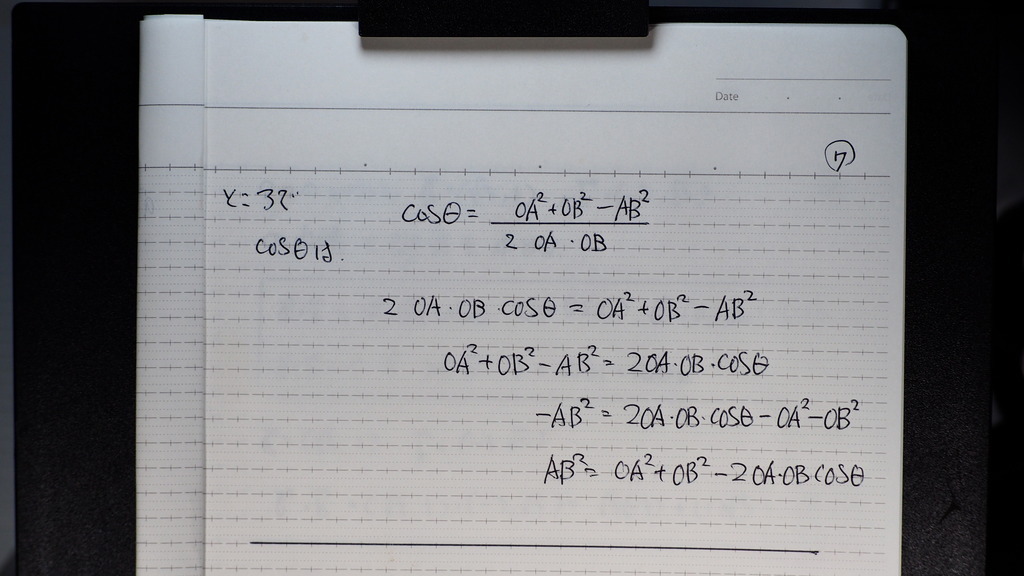 Date
⑦
cosθ = (OA²+OB²-AB²)/(2 OA・OB)
cosθは.
2 OA・OB・cosθ = OA²+OB²-AB²
OA²+OB²-AB² = 2OA・OB・cosθ
-AB² = 2OA・OB・cosθ-OA²-OB²
AB² = OA²+OB²-2OA・OBcosθ